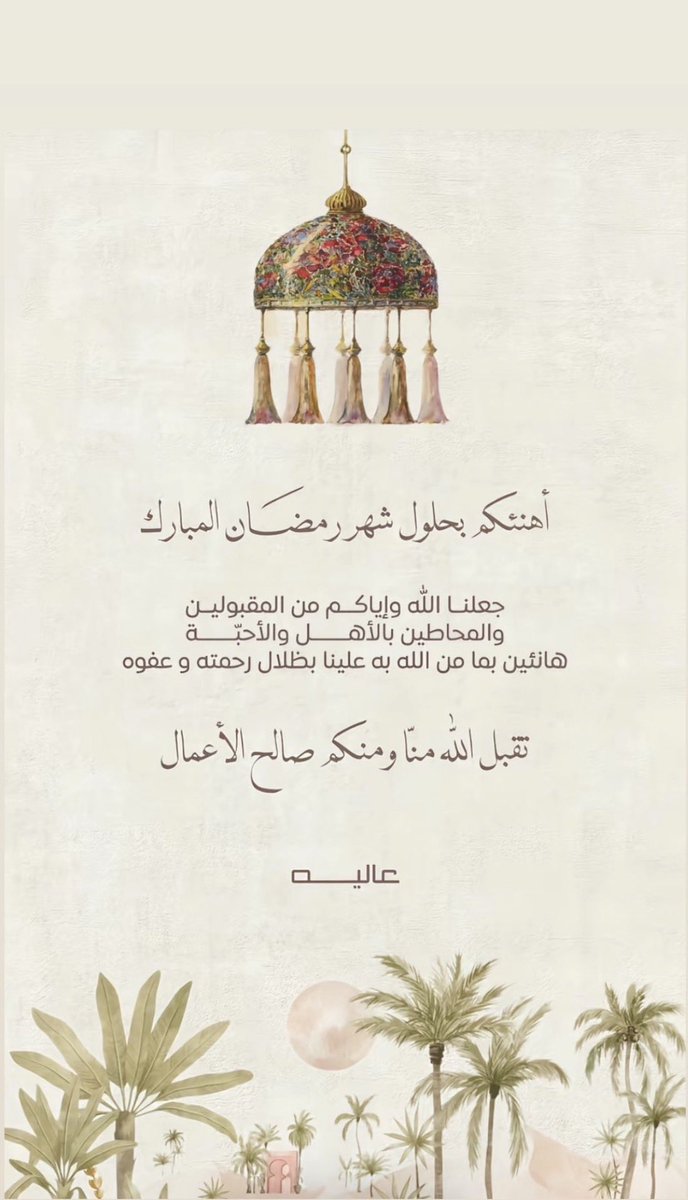 أهنئكم بحلول شهر رمضان المبارك
جعلنا الله وإياكم من المقبولين
والمحاطين بالأهل والأحبّة
هانئين بما من الله به علينا بظلال رحمته و عفوه
تقبل الله منّا ومنكم صالح الأعمال
عاليه